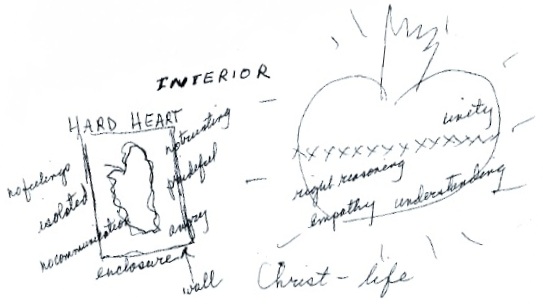 INTERIOR
HARD HEART
no feelings
isolated
no communication
not trusting
prideful
angry
enclosure
wall
unity
xxxxxxxxxxxxxxx
right reasoning
empathy understanding
Christ-life